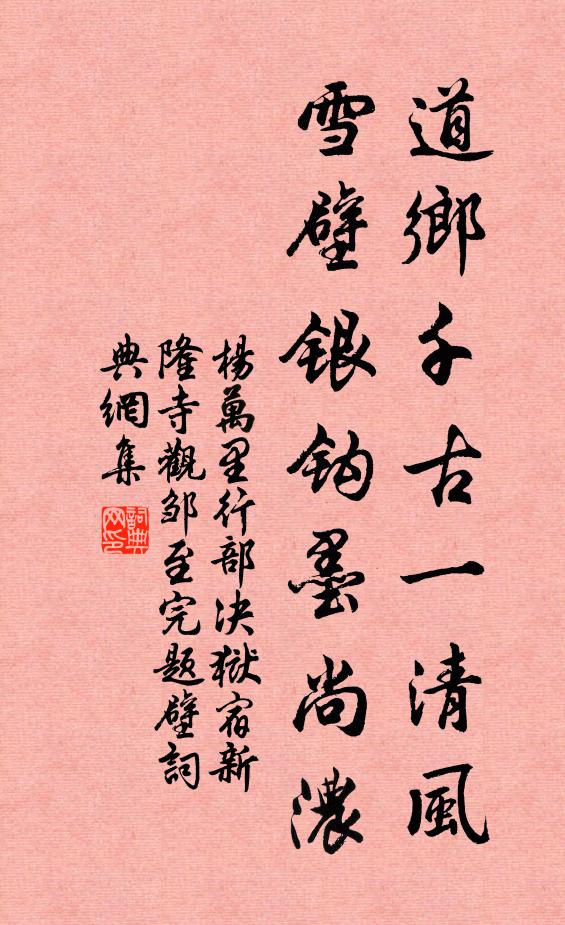 道鄉千古一清風
雪壁銀鉤墨尚濃
楊萬里行部決獄宿新
隆寺觀邹至完题壁詞
典網集
詞典
网印